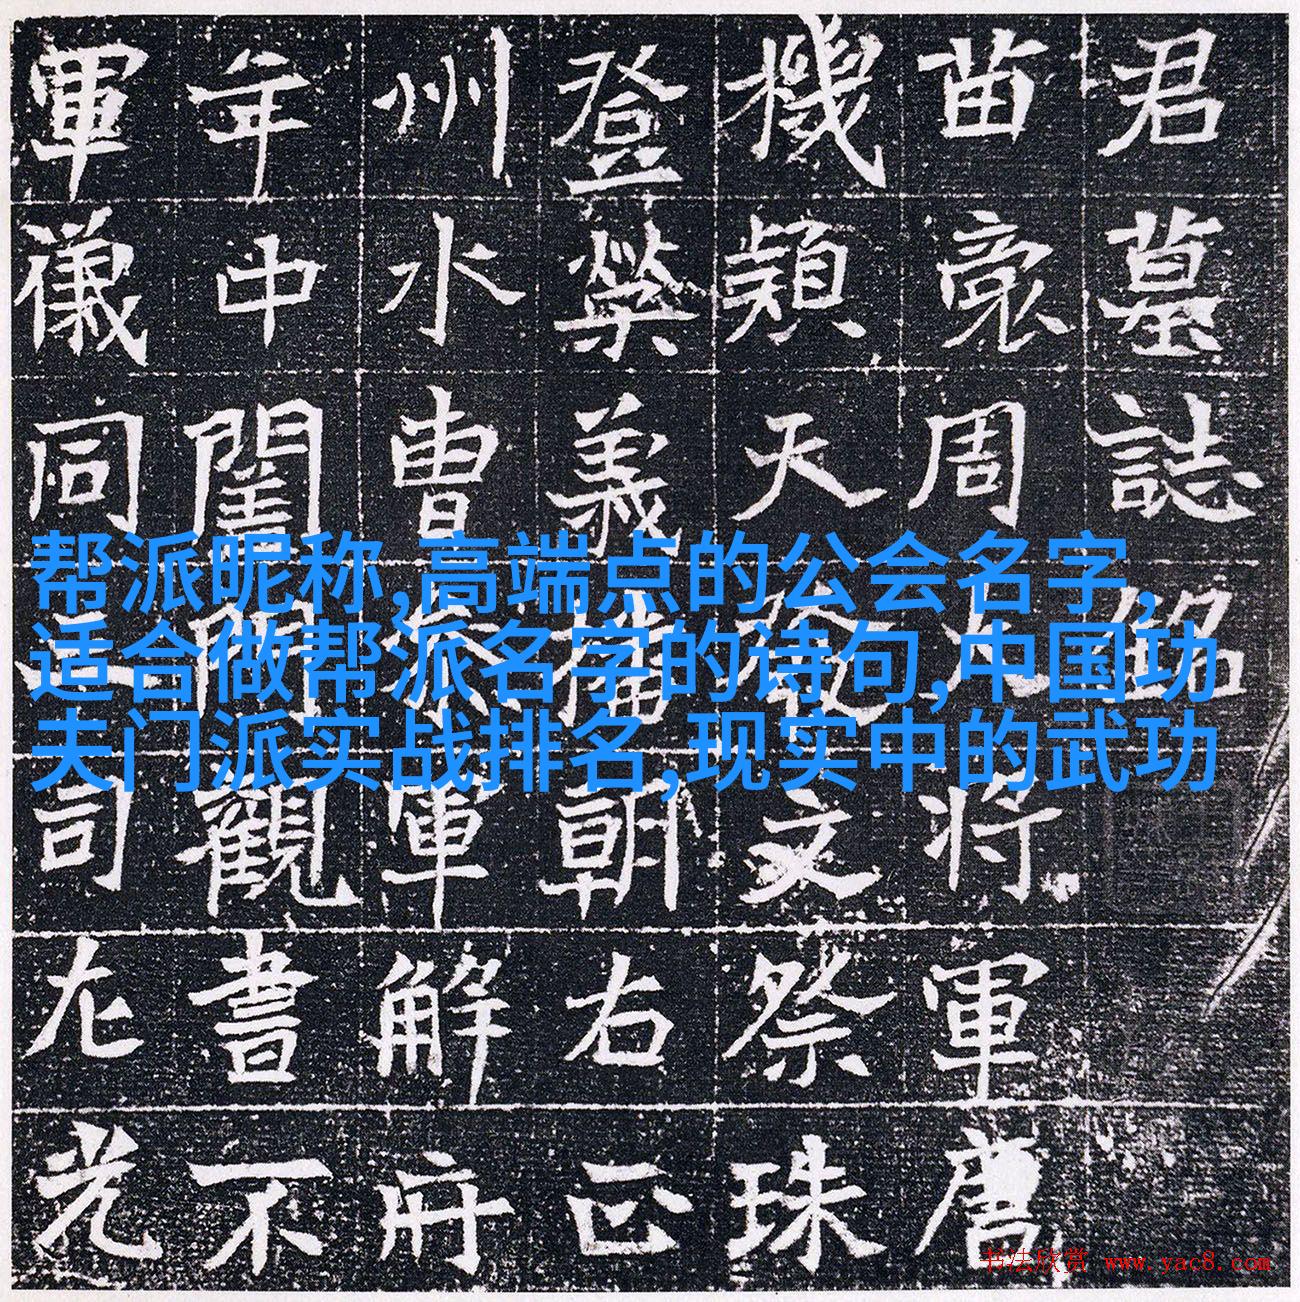 君墓誌銘
苗裔周將軍唐
機穎天文祭珠
登榮義朝右正
州水曹參軍解府
年中閨門觀書不
軍儀同三司左光
帮派昵称,高端点的公会名字,
适合做帮派名字的诗句,中国功
夫门派实战排名,现实中的武功
书法欣赏 www.yac8.com